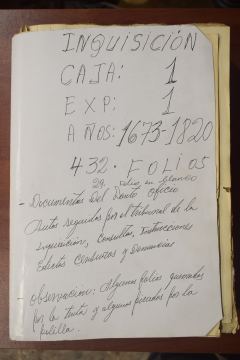 INQUISICIÓN
CAJA: 1
EXP: 1
AÑOS: 1673-1820
432. FOLIOS
29 folios en blanco
- Documentos del Santo Oficio
Autos seguidos por el tribunal de la
Inquisición, Consultas, Instrucciones
Edictos Censuras y Denuncias
Observacion: Algunos folios quemados
por la tinta y algunos picados por la
polilla.